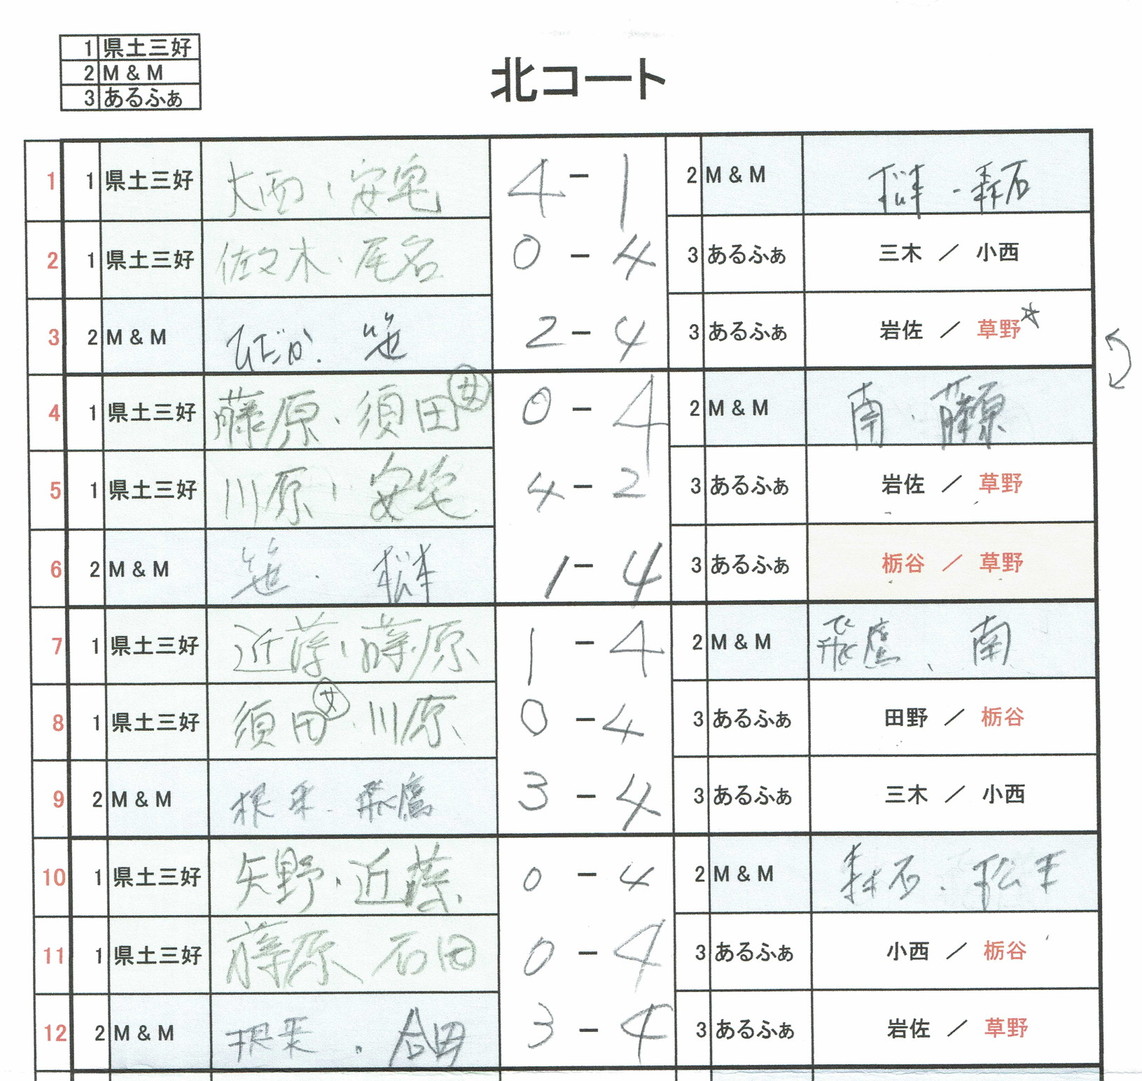 1 県土三好
2 M & M
3 あるふぁ
北コート
1 1 県土三好 大西・安宅 4 - 1 2 M & M
2 1 県土三好 佐々木・尾名 0 - 4 3 あるふぁ 三木 ／ 小西
3 2 M & M ひだか. 笹 2 - 4 3 あるふぁ 岩佐 ／ 草野☆
4 1 県土三好 藤原・須田女 0 - 4 2 M & M 南・藤原
5 1 県土三好 川原・安宅 4 - 2 3 あるふぁ 岩佐 ／ 草野
6 2 M & M 笹・ 1 - 4 3 あるふぁ 栃谷 ／ 草野
7 1 県土三好 近藤・藤原 1 - 4 2 M & M 飛鷹、南
8 1 県土三好 須田女・川原 0 - 4 3 あるふぁ 田野 ／ 栃谷
9 2 M & M 根来・飛鷹 3 - 4 3 あるふぁ 三木 ／ 小西
10 1 県土三好 矢野・近藤 0 - 4 2 M & M
11 1 県土三好 藤原 石田 0 - 4 3 あるふぁ 小西 ／ 栃谷
12 2 M & M 根来・合田 3 - 4 3 あるふぁ 岩佐 ／ 草野